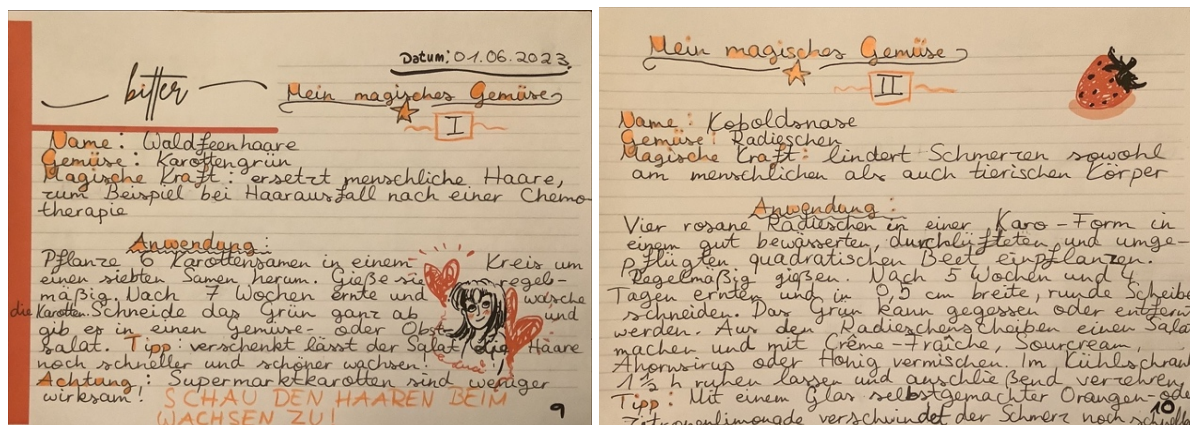 Datum: 01.06.2023
bitter
Mein magisches Gemüse
I
Name: Waldfeenhaare
Gemüse: Karottengrün
Magische Kraft: ersetzt menschliche Haare,
zum Beispiel bei Haarausfall nach einer Chemo-
therapie
Anwendung:
Pflanze 6 Karottensamen in einem Kreis um
einen siebten Samen herum. Gieße sie regel-
mäßig. Nach 7 Wochen ernte und wasche
die Karotten. Schneide das Grün ganz ab und
gib es in einen Gemüse- oder Obst-
salat. Tipp: verschenkt lässt der Salat die Haare
noch schneller und schöner wachsen.
Achtung: Supermarktkarotten sind weniger
wirksam!
SCHAU DEN HAAREN BEIM
WACHSEN ZU!
9
Mein magisches Gemüse
II
Name: Kopoldsnase
Gemüse: Radieschen
Magische Kraft: lindert Schmerzen sowohl
am menschlichen als auch tierischen Körper
Anwendung:
Vier rosane Radieschen in einer Karo-Form in
einem gut bewässerten, durchlüfteten und umge-
pflügten quadratischen Beet einpflanzen.
Regelmäßig gießen. Nach 5 Wochen und 4
Tagen ernten und in 0,5 cm breite, runde Scheibe
schneiden. Das Grün kann gegessen oder entfern
werden. Aus den Radieschenscheiben einen Sala
machen und mit Crême-Fraîche, Sourcream,
Ahornsirup oder Honig vermischen. Im Kühlschran
1½ h ruhen lassen und anschließend verzehren.
Tipp: Mit einem Glas selbstgemachter Orangen- ode
Zitronenlimonade verschwindet der Schmerz noch schnelle
10